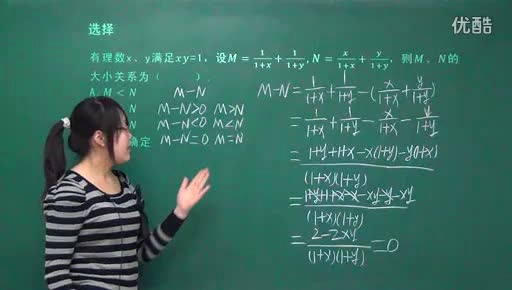 优酷
选择
有理数x、y满足xy=1，设M=1/(1+x)+1/(1+y),N=x/(1+x)+y/(1+y)，则M、N的
大小关系为（ ）.
A.M<N
确定
M-N
M-N>0 M>N
M-N<0 M<N
M-N=0 M=N
M-N=1/(1+x)+1/(1+y)-(x/(1+x)+y/(1+y))
=1/(1+x)+1/(1+y)-x/(1+x)-y/(1+y)
=(1+y+1+x-x(1+y)-y(1+x))/((1+x)(1+y))
=(1+y+1+x-x-xy-y-xy)/((1+x)(1+y))
=(2-2xy)/((1+x)(1+y))=0